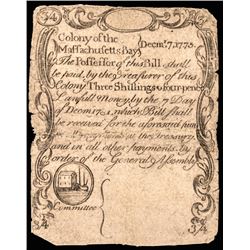 3/4
3/4
Colony of the
Massachusetts Bay
Decmr. 7, 1775.
The Possessor of this Bill shall
be paid, by the Treasurer of this
Colony Three Shillings & four penc
Lawfull Money, by the 7 Day
of Decemr. which Bill shall
be received for the aforesaid sum
at the Treasury
and in all other payments. by
order of the General Assembly
Committee
3/4
3/4